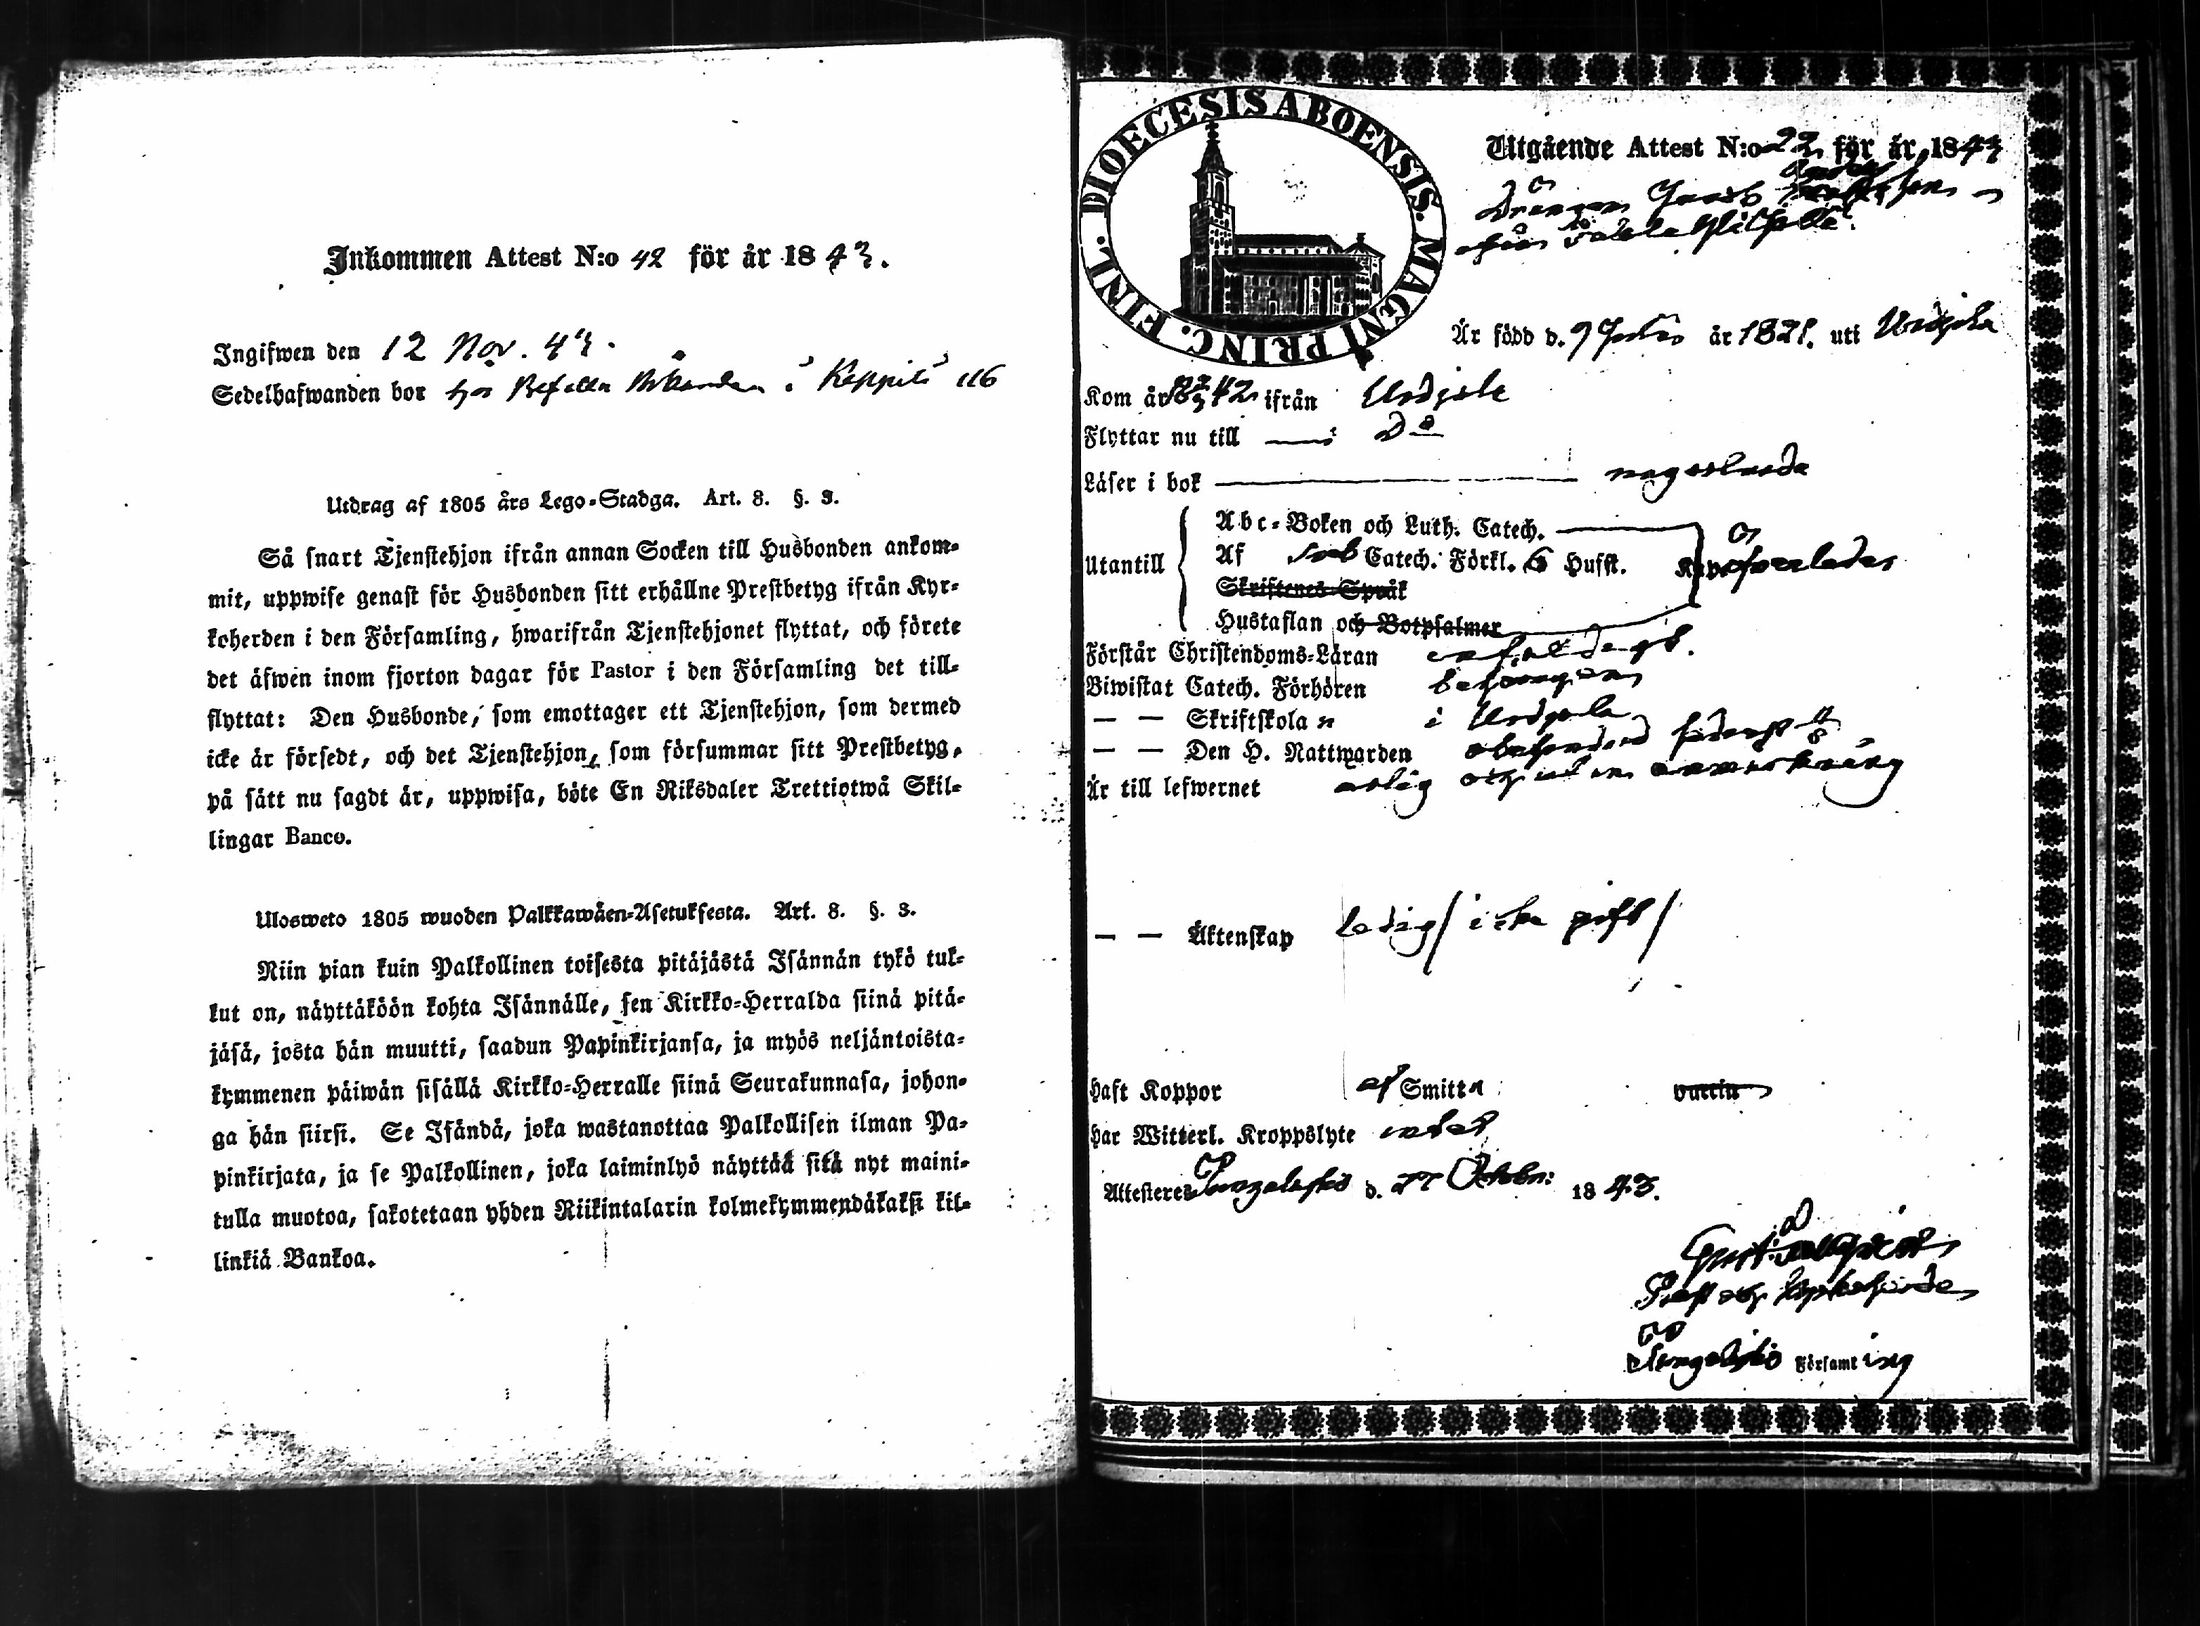 Inkommen Attest N:o 42 för år 1843.
Ingifwen den 12 Nov. 43.
Sedelhafwanden bor hos i 116
Utdrag af 1805 års Lego-Stadga. Art. 8. §. 3.
Så snart Tjenstehjon ifrån annan Socken till Husbonden ankom-
mit, uppwise genast för Husbonden sitt erhållne Prestbetyg ifrån Kyr-
koherden i den Församling, hwarifrån Tjenstehjonet flyttat, och förete
det äfwen inom fjorton dagar för Pastor i den Församling det till-
flyttat: Den Husbonde, som emottager ett Tjenstehjon, som dermed
icke är försedt, och det Tjenstehjon, som försummar sitt Prestbetyg,
på sätt nu sagdt är, uppwisa, böte En Riksdaler Trettiotwå Skil-
lingar Banco.
Ulosweto 1805 wuoden Palkkawäen-Asetuksesta. Art. 8. §. 3.
Niin pian kuin Palkollinen toisesta pitäjästä Isännän tykö tul-
lut on, näyttäköön kohta Isännälle, sen Kirkko-Herralda siinä pitä-
jäsä, josta hän muutti, saadun Papinkirjansa, ja myös neljäntoista-
kymmenen päiwän sisällä Kirkko-Herralle siinä Seurakunnasa, johon-
ga hän siirsi. Se Isändä, joka wastanottaa Palkollisen ilman Pa-
pinkirjata, ja se Palkollinen, joka laiminlyö näyttää sitä nyt maini-
tulla muotoa, sakotetaan yhden Riikintalarin kolmekymmendäkaksi kil-
linkiä Bankoa.
DIOECESIS ABOENSIS. MAGNI PRINC. FINL.
Utgående Attest N:o 22 för år 1843
Drängen Jacob
ifrån
Är född d. 9 Julii år 1821. uti Urdjala
Kom år 1842 ifrån Urdjala
Flyttar nu till Do
Läser i bok någorlunda
Utantill
Abc-Boken och Luth. Catech.
Af Sveb Catech. Förkl. 6 Hufst.
Skriftenes Språk
Hustaflan och Botpsalmer
Förstår Christendoms-Läran enfaldigt.
Biwistat Catech. Förhören
— — Skriftskola i Urdjala
— — Den H. Nattwarden
Är till lefwernet ärlig och utan anmärkning
— — Äktenskap ledig/ icke gift/
Haft Koppor af Smitta vaccin
Har Witterl. Kroppslyte intet
Attesteres Tengelaskoe d. 27 Octobr: 1843.
Prost och Kyrkoherde
Församling